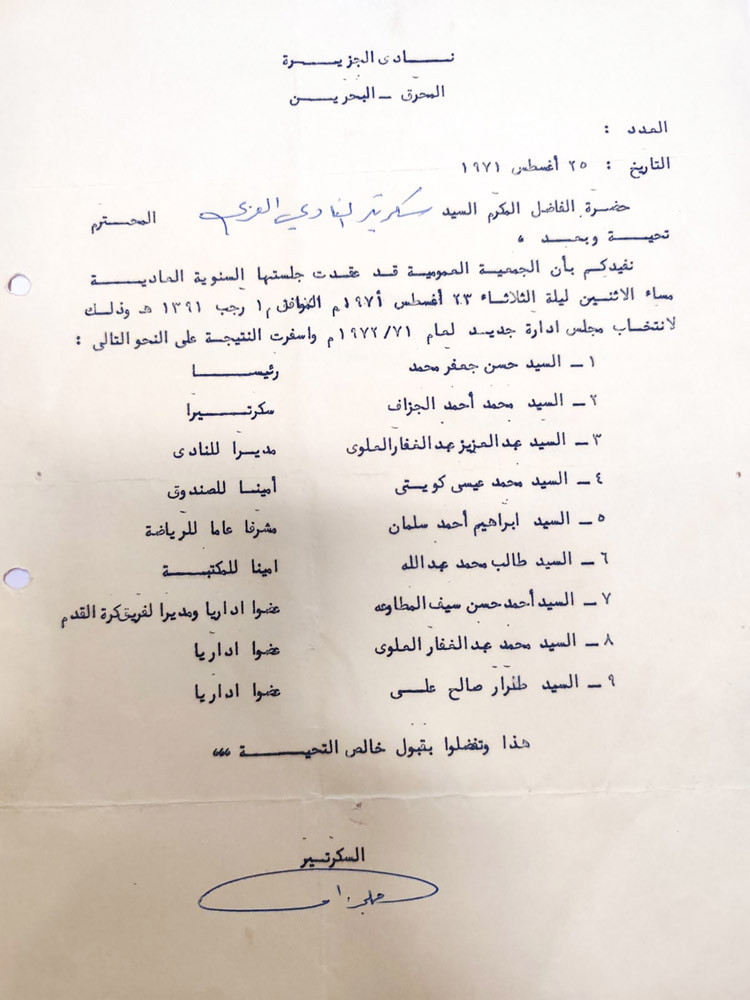 نادى الجزيرة
المحرق - البحرين
العدد :
التاريخ : ٢٥ أغسطس ١٩٧١
حضرة الفاضل المكرم السيد سكرتير النادي العربي المحترم
تحية وبعد ،
نفيدكم بأن الجمعية العمومية قد عقدت جلستها السنوية العادية
مساء الاثنين ليلة الثلاثاء ٢٣ أغسطس ١٩٧١م الموافق ١ رجب ١٣٩١ هـ وذلك
لانتخاب مجلس ادارة جديد لعام ١٩٧٢/٧١م واسفرت النتيجة على النحو التالى :
١ - السيد حسن جعفر محمد رئيسا
٢ - السيد محمد أحمد الجزاف سكرتيرا
٣ - السيد عبدالعزيز عبدالغفار العلوى مديرا للنادى
٤ - السيد محمد عيسى كويتى أمينا للصندوق
٥ - السيد ابراهيم أحمد سلمان مشرفا عاما للرياضة
٦ - السيد طالب محمد عبدالله امينا للمكتبة
٧ - السيد أحمد حسن سيف المطاوعه عضوا اداريا ومديرا لفريق كرة القدم
٨ - السيد محمد عبدالغفار العلوى عضوا اداريا
٩ - السيد طرار صالح على عضوا اداريا
هذا وتفضلوا بقبول خالص التحية ،،،
السكرتير